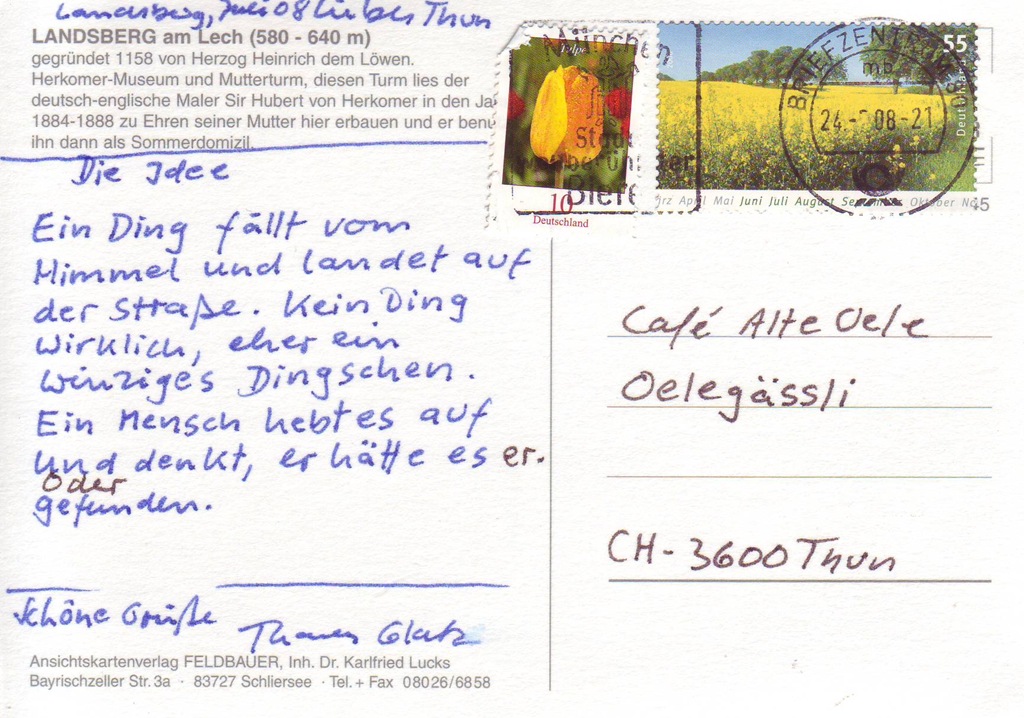 Landsberg, Juli 08 Liebes Thun
LANDSBERG am Lech (580 - 640 m)
gegründet 1158 von Herzog Heinrich dem Löwen.
Herkomer-Museum und Mutterturm, diesen Turm lies der
deutsch-englische Maler Sir Hubert von Herkomer in den Ja
1884-1888 zu Ehren seiner Mutter hier erbauen und er benu
ihn dann als Sommerdomizil.
Die Idee
Ein Ding fällt vom
Himmel und landet auf
der Straße. Kein Ding
wirklich, eher ein
winziges Dingschen.
Ein Mensch hebt es auf
und denkt, er hätte es er-
oder
gefunden.
Schöne Grüße
Thomas Glatz
Ansichtskartenverlag FELDBAUER, Inh. Dr. Karlfried Lucks
Bayrischzeller Str. 3a · 83727 Schliersee · Tel. + Fax 08026/6858
Tulpe
10
Deutschland
München
Biere
55
Deutschland
BRIEFZENTRUM
mb
24.-7.08-21
März April Mai Juni Juli August September Oktober No
45
Café Alte Oele
Oelegässli
CH-3600 Thun